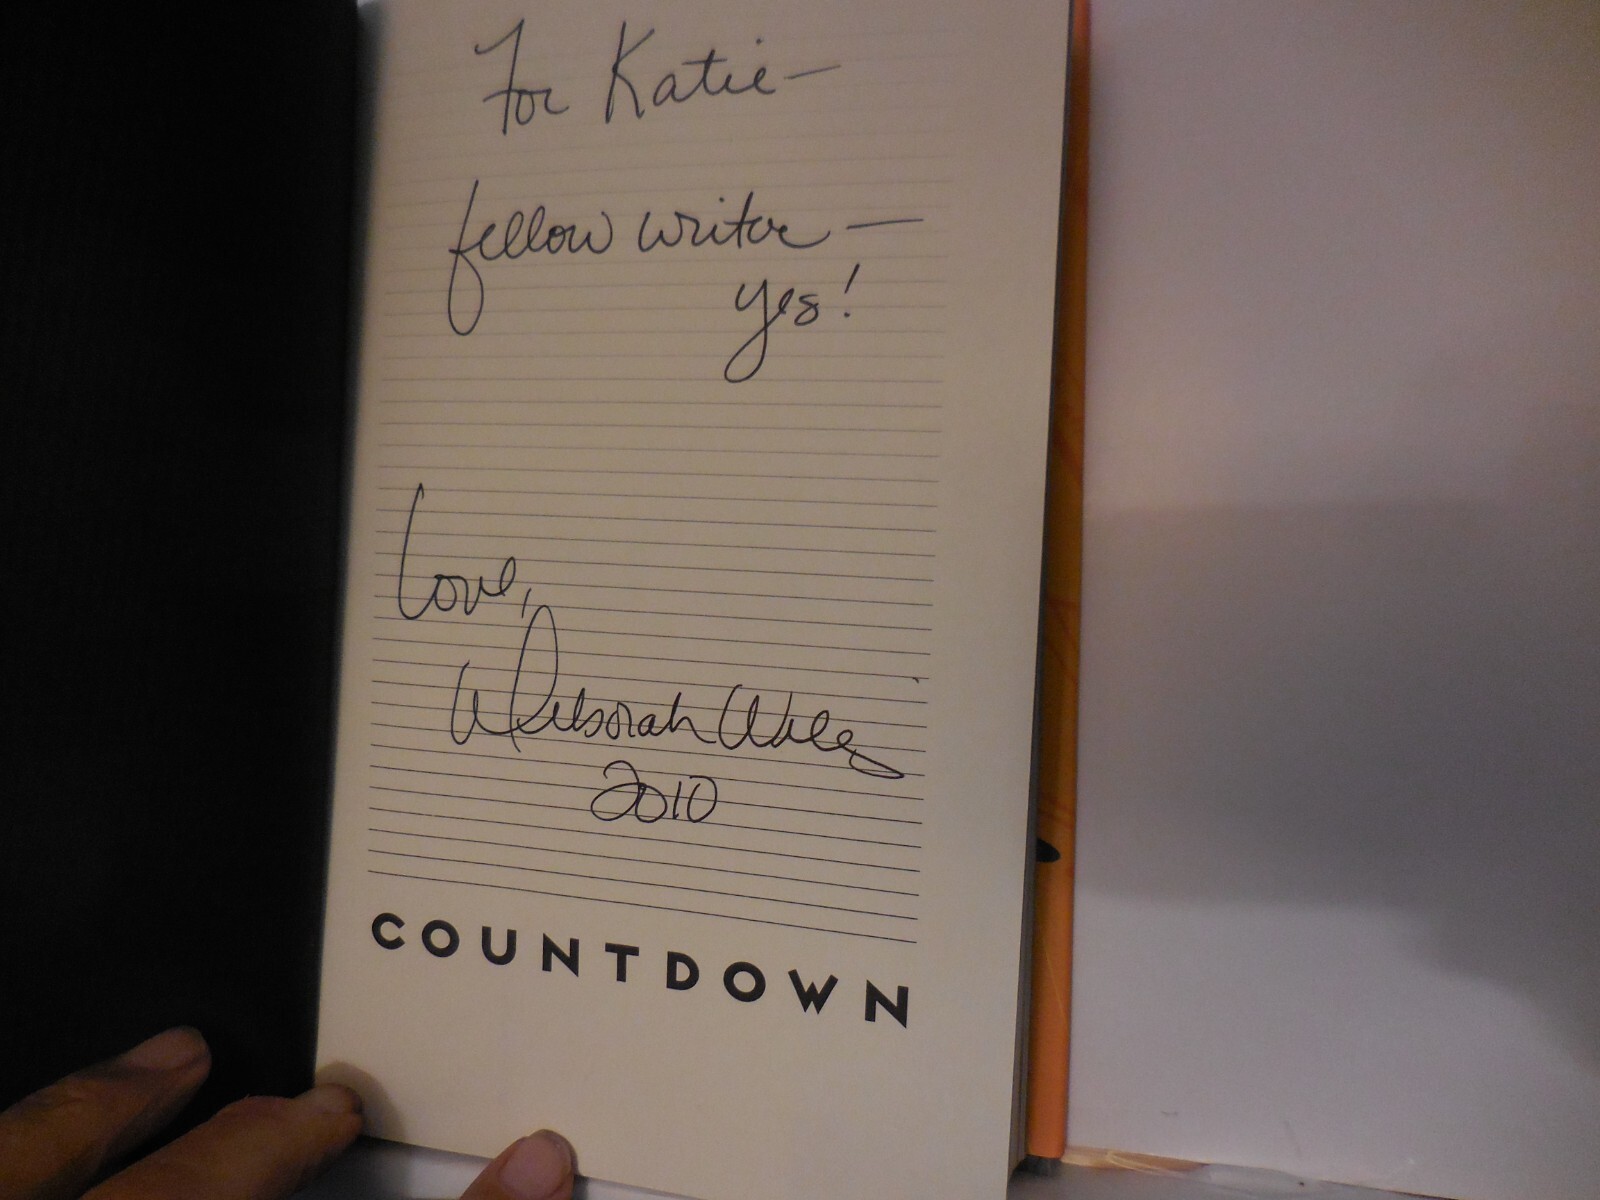 For Katie—
fellow writer—
yes!
Love,
Deborah Wiles
2010
COUNTDOWN